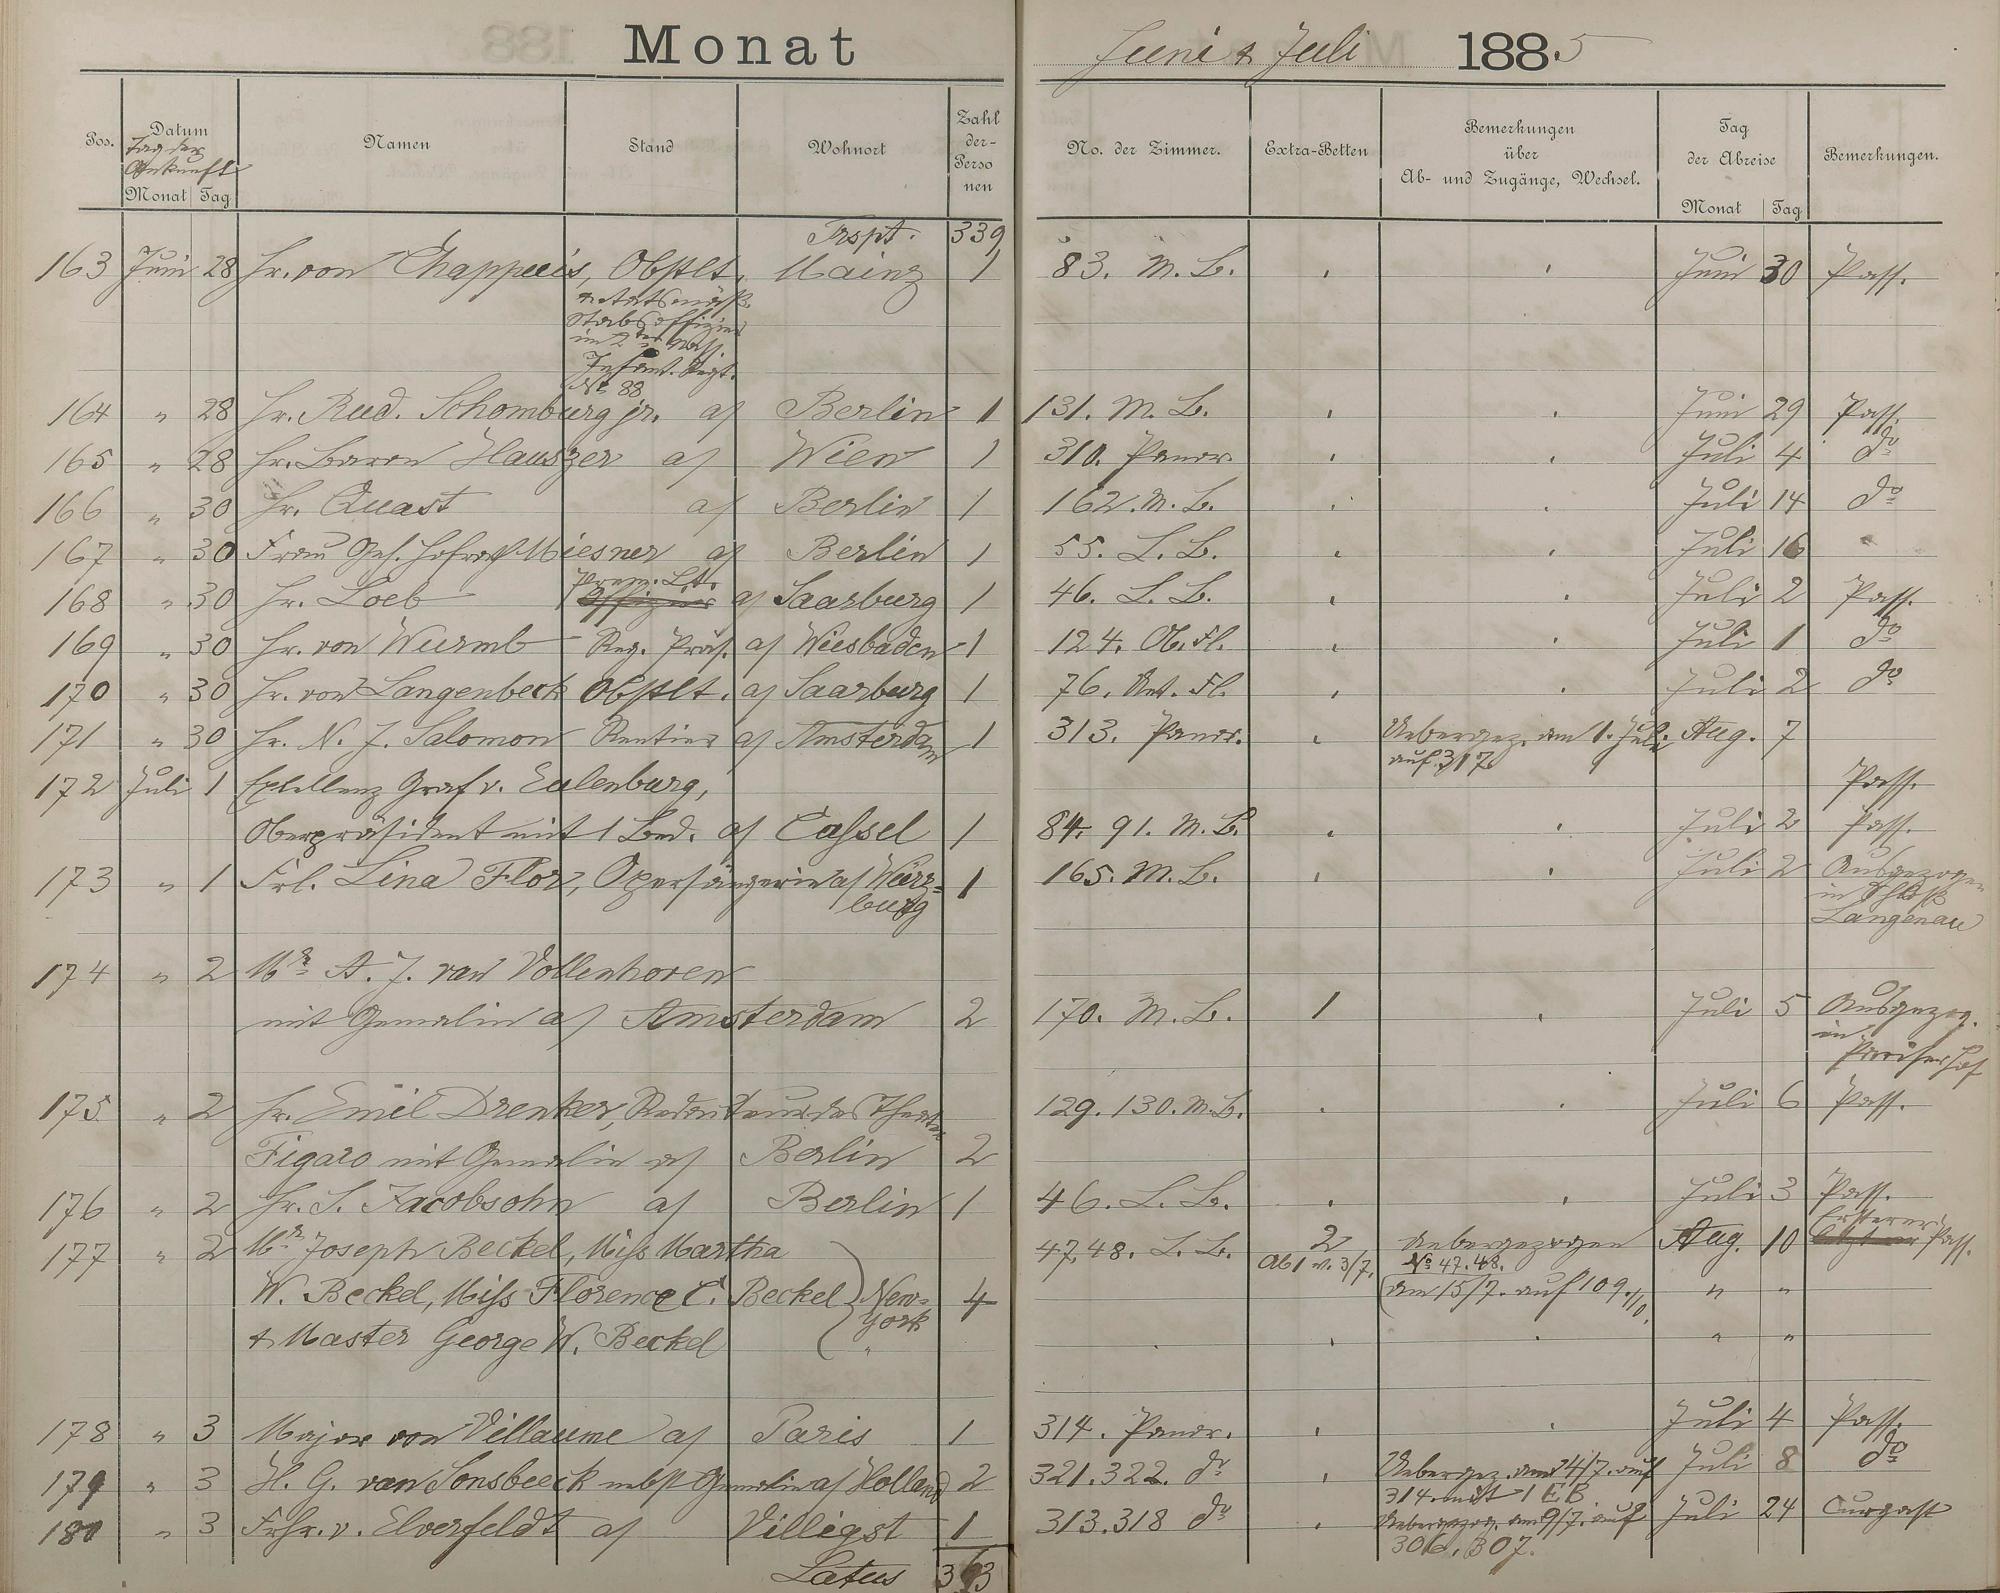 Monat Juni & Juli 1885
Pos. Datum Namen Stand Wohnort Zahl der Personen No. der Zimmer. Extra-Betten Bemerkungen über Ab- und Zugänge, Wechsel. Tag der Abreise Bemerkungen.
Tag der Ankunft
Monat Tag Monat Tag
Trspt. 339
163 Juni 28 Hr. von Chappuis, Obstlt. Mainz 1 83. M. B. Juni 30 Pass.
u. etatsmäß.
Stabsoffizier
im 2ten Nass.
Infant. Regt.
No 88
164 " 28 Hr. Rud. Schomburg jr. as Berlin 1 131. M. B. Juni 29 Pass.
165 " 28 Hr. Baron Hauszer as Wien 1 310. Panor. Juli 4 do
166 " 30 Hr. Quast as Berlin 1 162. M. B. Juli 14 do
167 " 30 Frau Geh. Hofrath Miesner as Berlin 1 55. L. B. Juli 16
168 " 30 Hr. Loeb Prem. Lt. Offizier as Saarburg 1 46. L. B. Juli 2 Pass.
169 " 30 Hr. von Wurmb Reg. Präs. as Wiesbaden 1 124. Ob. Fl. Juli 1 do
170 " 30 Hr. von Langenbeck Obstlt. as Saarburg 1 76. Unt. Fl. Juli 2 do
171 " 30 Hr. N. J. Salomon Rentier as Amsterdam 1 313. Panor. Uebergez. am 1. Juli Aug. 7
auf 317.
172 Juli 1 Exellenz Graf v. Eulenburg, Pass.
Oberpräsident mit 1 Bed. as Cassel 1 84. 91. M. B. Juli 2 Pass.
173 " 1 Frl. Lina Flor, Opersängerin as Würz- 1 165. M. B. Juli 2 Ausgezogen
burg in Schloß
Langenau
174 " 2 Mr A. J. van Vollenhoven
mit Gemalin as Amsterdam 2 170. M. B. 1 Juli 5 Ausgezog.
in
Pariser Hof
175 " 2 Hr. Emil Drenker, Redakteur des Theater 129. 130. M. B. Juli 6 Pass.
Figaro mit Gemalin as Berlin 2
176 " 2 Hr. S. Jacobsohn as Berlin 1 46. L. B. Juli 3 Pass.
177 " 2 Mr Joseph Beckel, Miss Martha 47.48. L. B. 2 Uebergezogen Aug. 10 Ersterer Pass.
Ab 1 v. 3/7. No 47.48.
W. Beckel, Miss Florence C. Beckel New- 4 am 15/7. auf 109.110. " "
York
& Master George W. Beckel " " "
178 " 3 Major von Villaume as Paris 1 314. Panor. Juli 4 Pass.
179 " 3 H. G. van Sonsbeeck nebst Gemalin as Holland 2 321.322. do Uebergez. am 4/7. auf Juli 8 do
314. mit 1 EB
180 " 3 Frhr. v. Elverfeldt as Villigst 1 313.318 do Uebergezog. am 9/7. auf Juli 24 Curgast
306. 307.
Latus 363